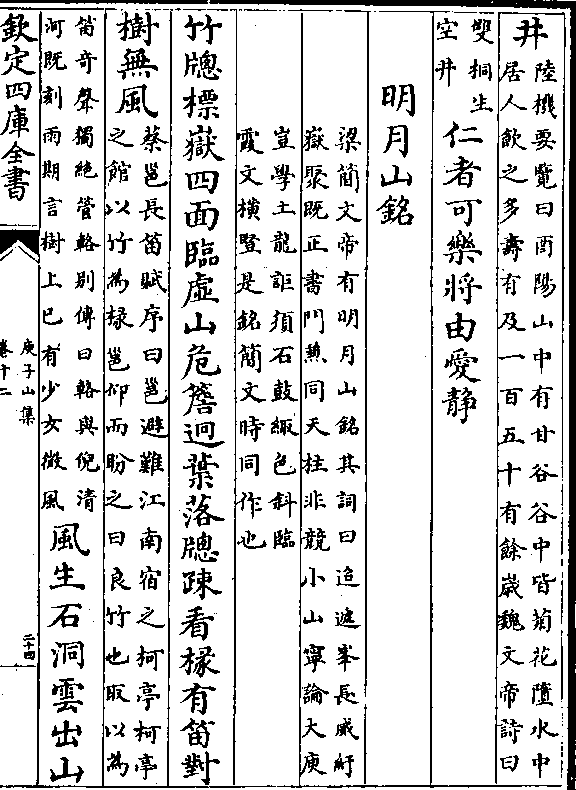 井陸機要覽曰酉陽山中有甘谷谷中皆菊花墮水中
居人飲之多壽有及一百五十有餘歲魏文帝詩曰
雙桐生
空井仁者可樂將由愛静
明月山銘
梁簡文帝有明月山銘其詞曰迢遞峯長威紆
嶽聚既正書門兼同天柱非競小山寧論大庾
豈學土龍詎須石鼓縹色斜臨
霞文橫豎是銘簡文時同作也
竹牕標嶽四面臨虛山危簷迥葉落牕疎看椽有笛對
樹無風蔡邕長笛賦序曰邕避難江南宿之柯亭柯亭
之館以竹為椽邕仰而盼之曰良竹也取以為
笛奇聲獨絶管輅别傳曰輅與倪清
河既刻雨期言樹上已有少女微風風生石洞雲出山
欽定四庫全書
庾子山集
卷十二
二十四